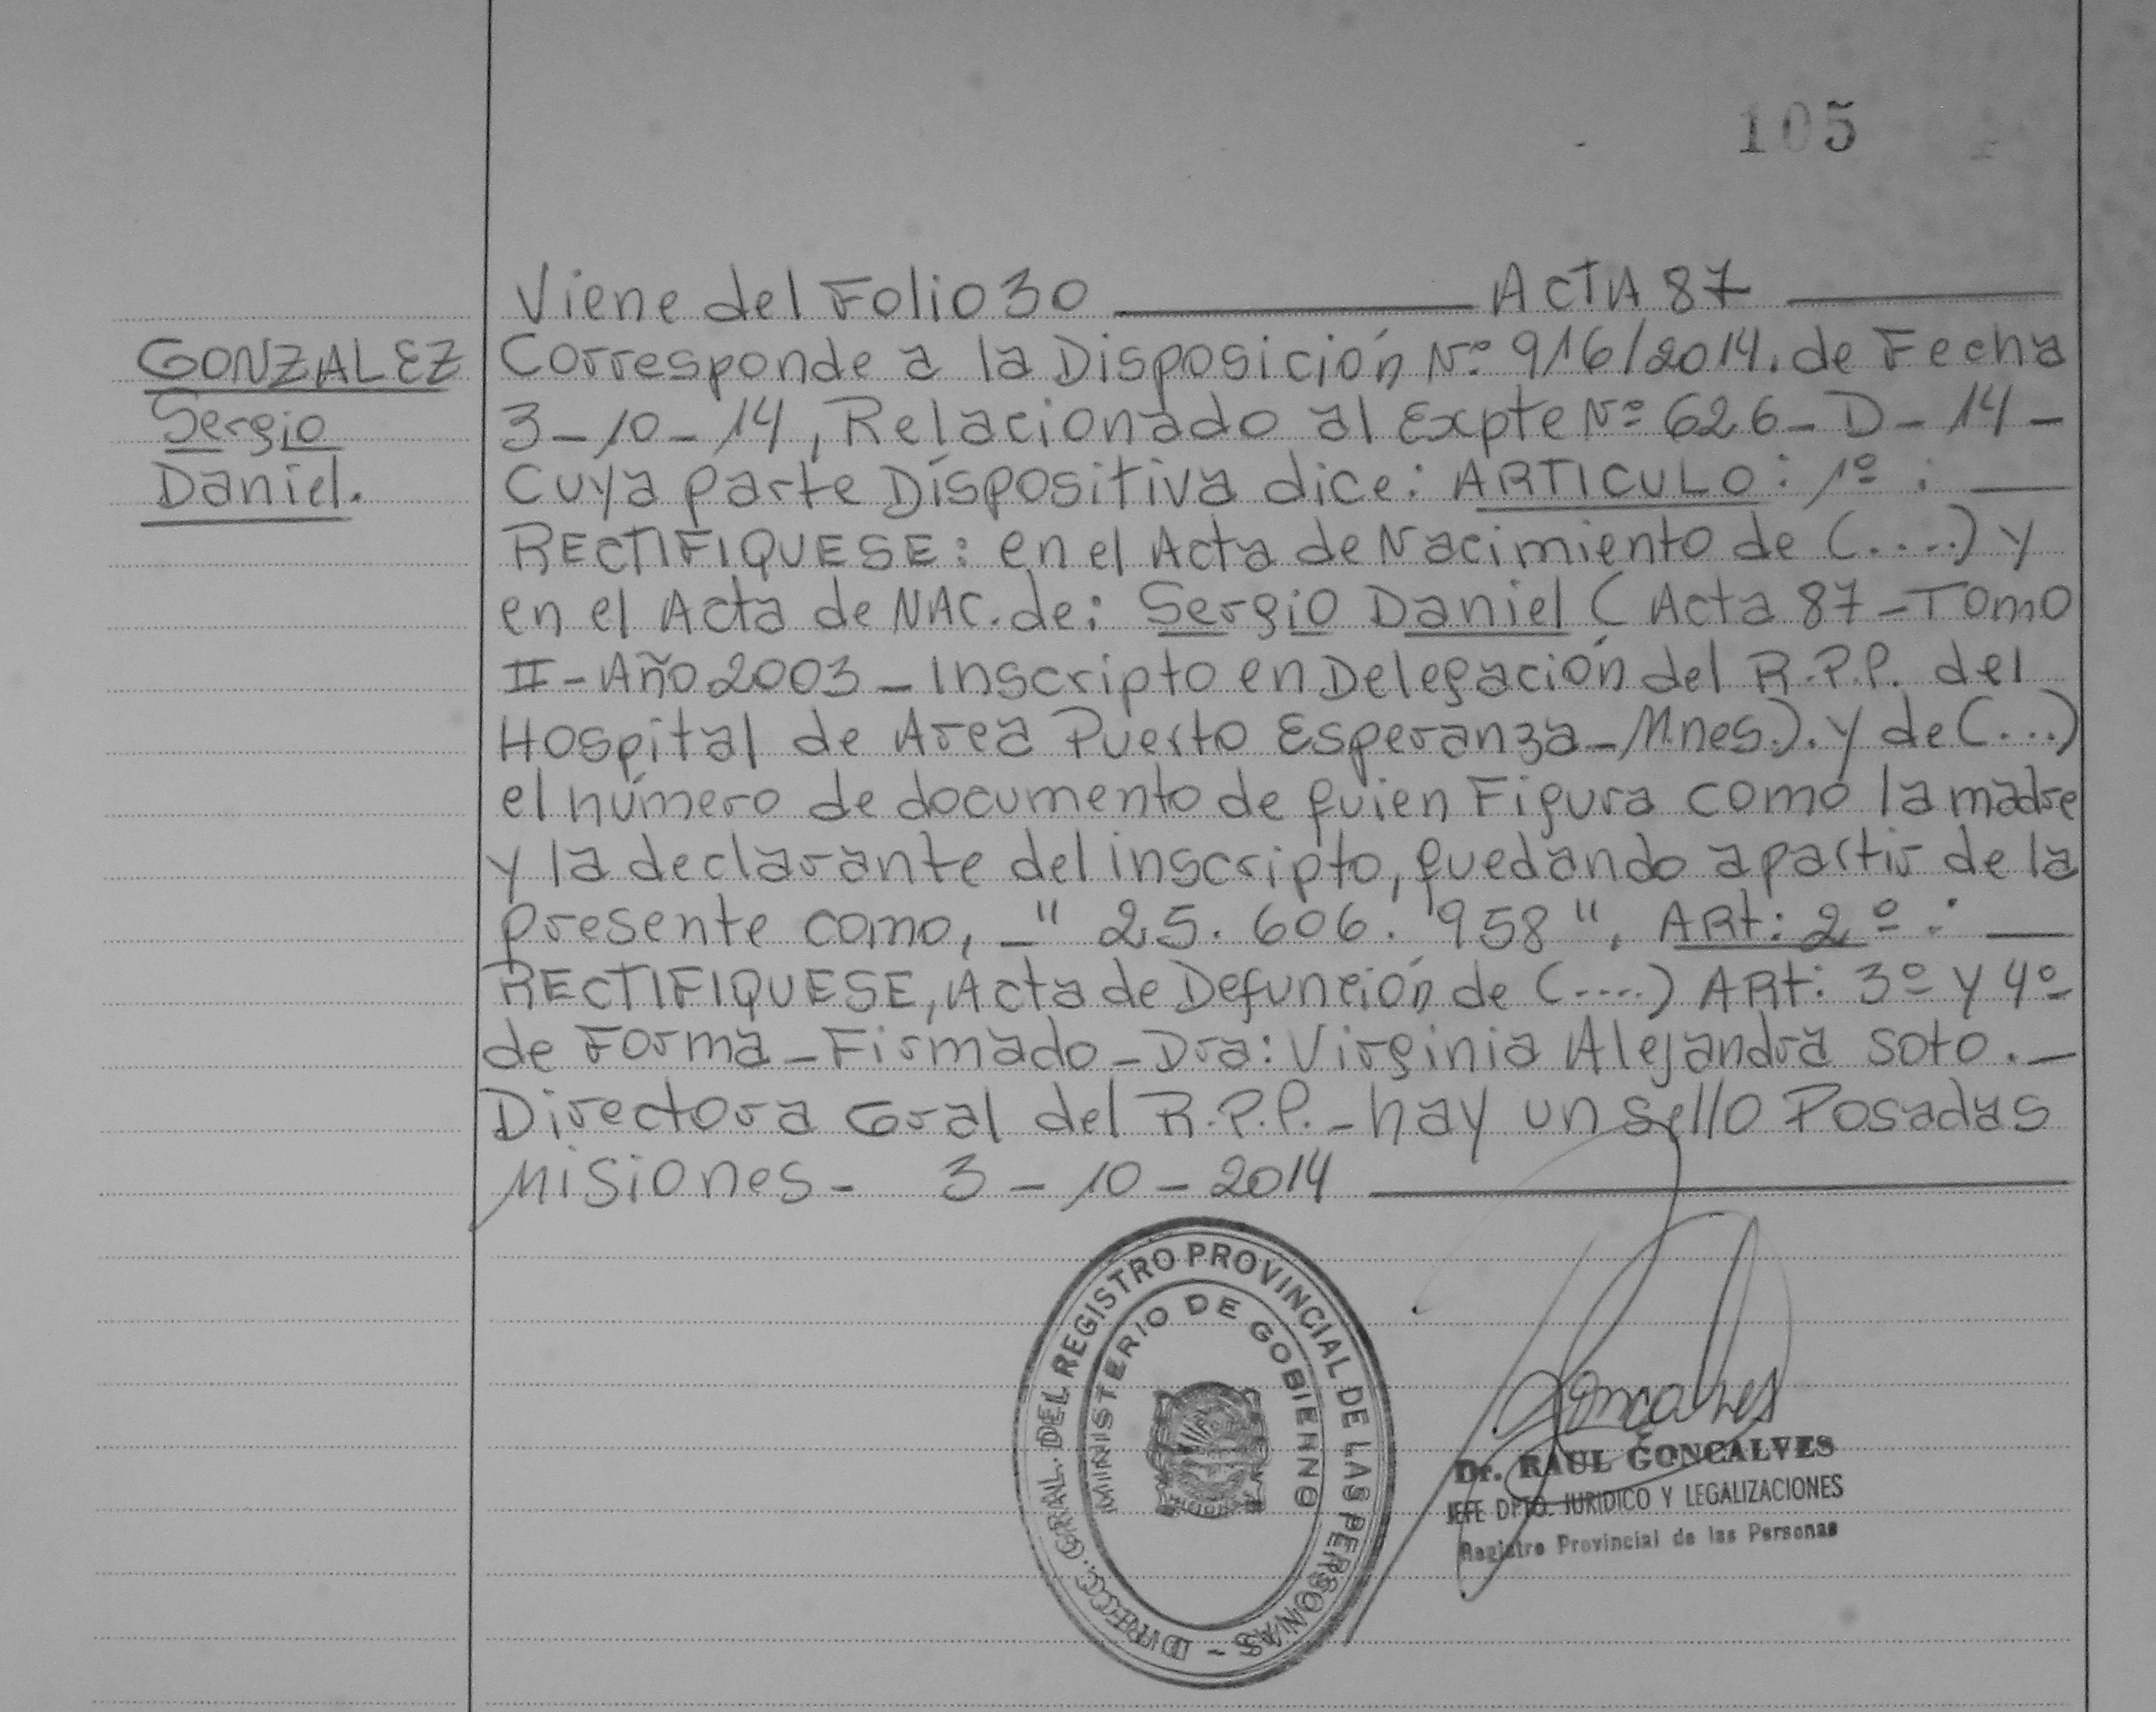 105
Viene del Folio 30 ACTA 87
GONZALEZ
Sergio
Daniel.
Corresponde a la Disposición Nº 916/2014. de Fecha
3-10-14, Relacionado al Expte Nº 626-D-14-
Cuya parte Dispositiva dice: ARTICULO: 1º:
RECTIFIQUESE: en el Acta de Nacimiento de (....) y
en el Acta de NAC. de: Sergio Daniel (Acta 87-Tomo
II-Año 2003-Inscripto en Delegación del R.P.P. del
Hospital de Area Puerto Esperanza-Mnes.). y de (...)
el número de documento de quien Figura como la madre
y la declarante del inscripto, quedando a partir de la
presente como, -"25.606.958", ARt: 2º:
RECTIFIQUESE, Acta de Defunción de (....) ARt: 3º y 4º
de Forma-Firmado-Dra: Virginia Alejandra Soto.-
Directora Gral del R.P.P.-hay un sello Posadas
Misiones- 3-10-2014
DIRECC. GRAL. DEL REGISTRO PROVINCIAL DE LAS PERSONAS -
MINISTERIO DE GOBIERNO
Goncalves
Dr. RAUL GONCALVES
JEFE DPTO. JURIDICO Y LEGALIZACIONES
Registro Provincial de las Personas